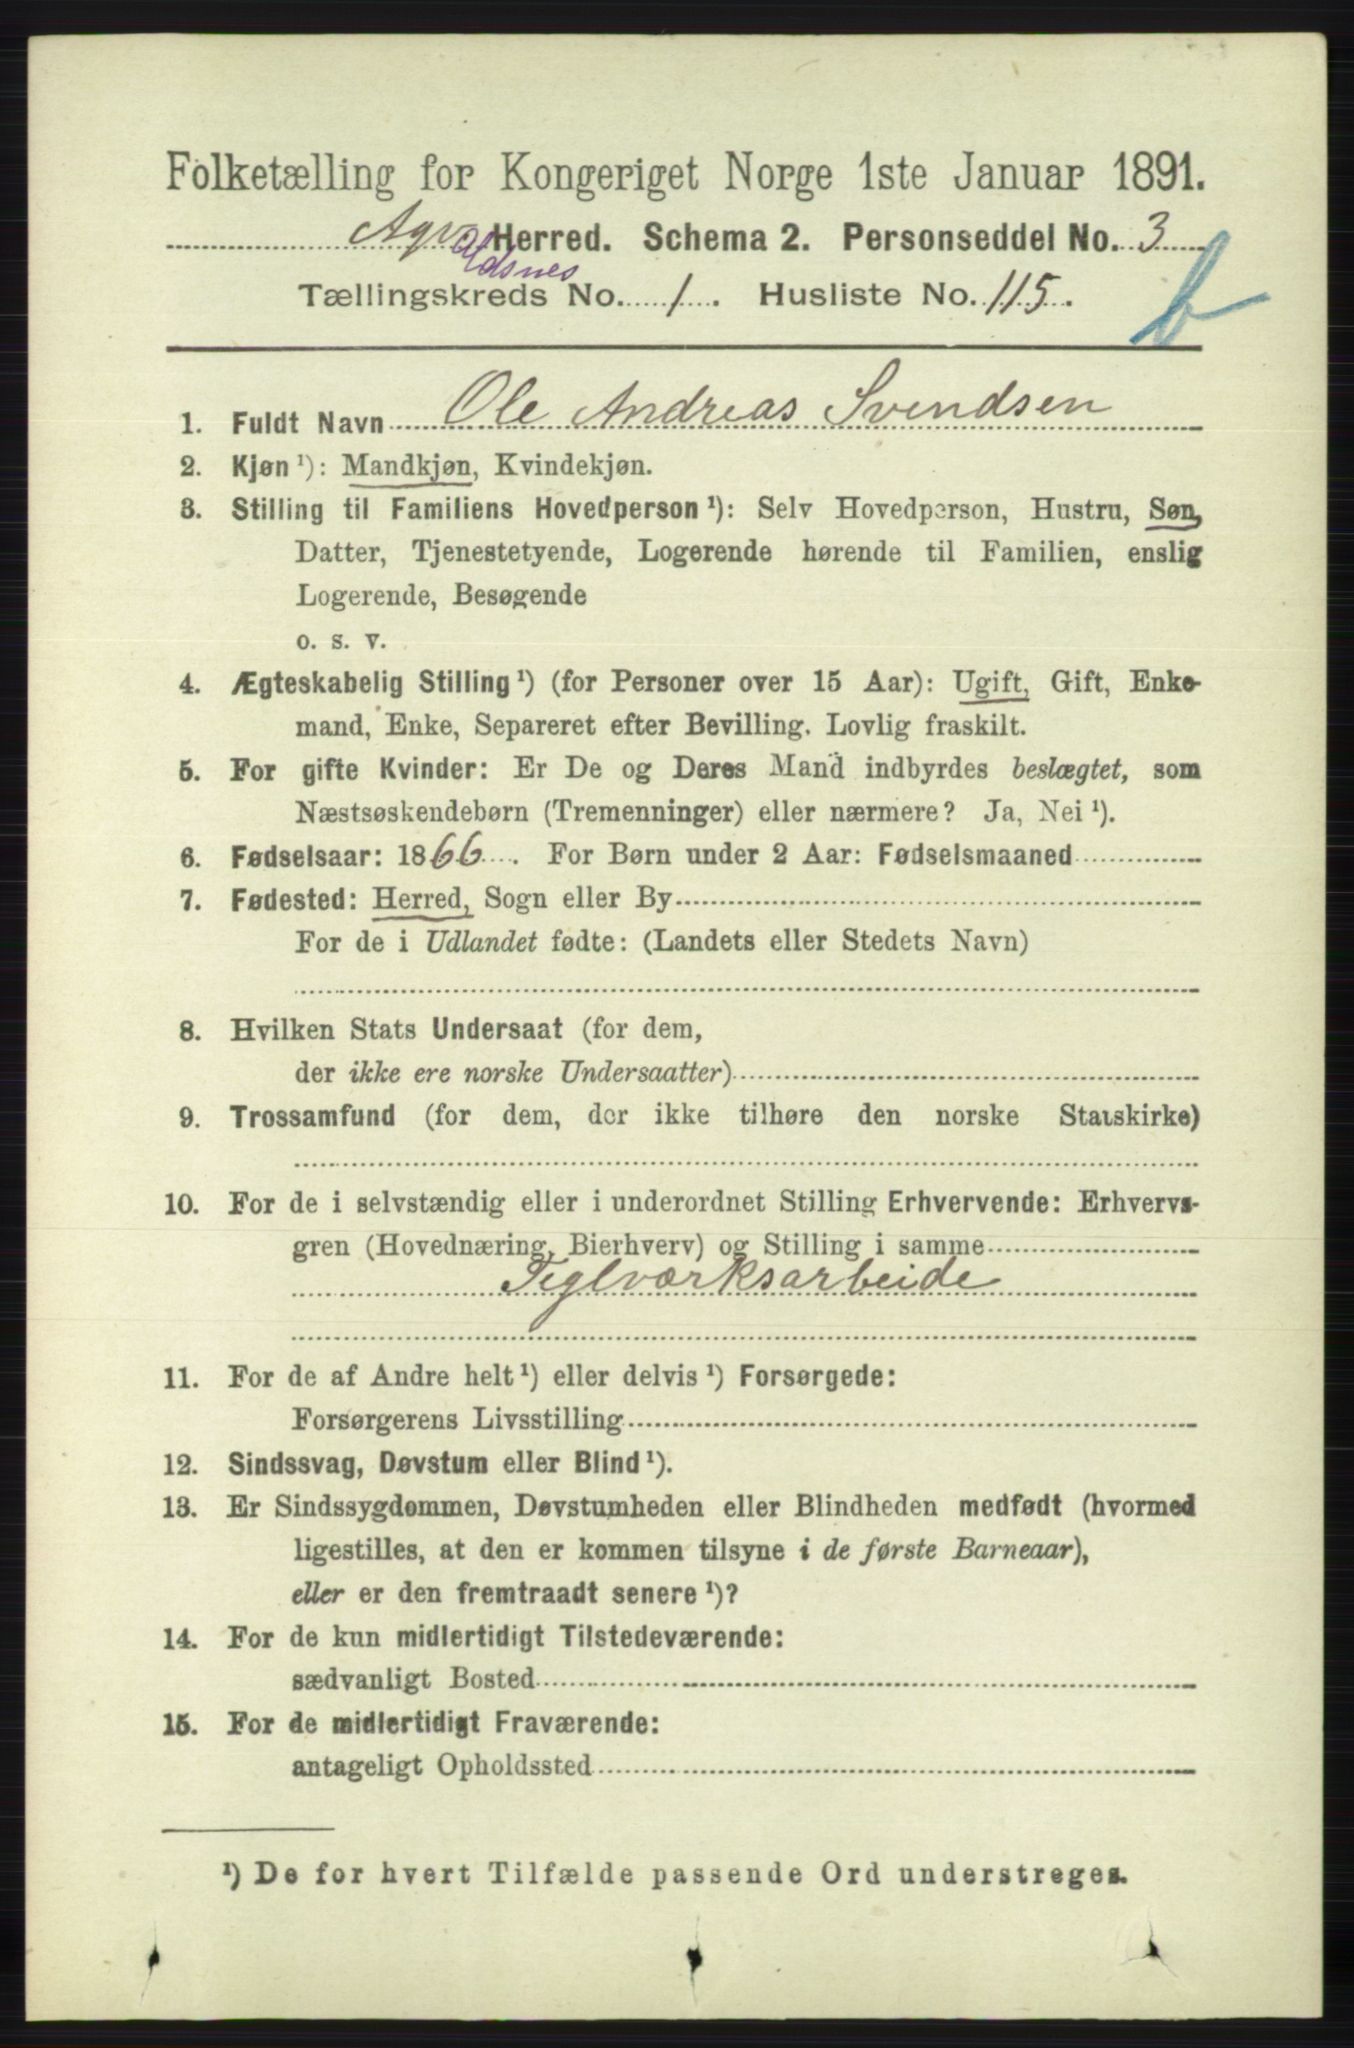 Folketælling for Kongeriget Norge 1ste Januar 1891.
Herred. Schema 2. Personseddel No. 3
Oldsnes
Tællingskreds No. 1. Husliste No. 115.
b
1. Fuldt Navn Ole Andreas Svendsen
2. Kjøn ¹): Mandkjøn, Kvindekjøn.
3. Stilling til Familiens Hovedperson ¹): Selv Hovedperson, Hustru, Søn,
Datter, Tjenestetyende, Logerende hørende til Familien, enslig
Logerende, Besøgende
o. s. v.
4. Ægteskabelig Stilling ¹) (for Personer over 15 Aar): Ugift, Gift, Enke-
mand, Enke, Separeret efter Bevilling. Lovlig fraskilt.
5. For gifte Kvinder: Er De og Deres Mand indbyrdes beslægtet, som
Næstsøskendebørn (Tremenninger) eller nærmere? Ja, Nei ¹).
6. Fødselsaar: 1866. For Børn under 2 Aar: Fødselsmaaned
7. Fødested: Herred, Sogn eller By
For de i Udlandet fødte: (Landets eller Stedets Navn)
8. Hvilken Stats Undersaat (for dem,
der ikke ere norske Undersaatter)
9. Trossamfund (for dem, der ikke tilhøre den norske Statskirke)
10. For de i selvstændig eller i underordnet Stilling Erhvervende: Erhvervs-
gren (Hovednæring, Bierhverv) og Stilling i samme
Teglværksarbeide
11. For de af Andre helt ¹) eller delvis ¹) Forsørgede:
Forsørgerens Livsstilling
12. Sindssvag, Døvstum eller Blind ¹).
13. Er Sindssygdommen, Døvstumheden eller Blindheden medfødt (hvormed
ligestilles, at den er kommen tilsyne i de første Barneaar),
eller er den fremtraadt senere ¹)?
14. For de kun midlertidigt Tilstedeværende:
sædvanligt Bosted
15. For de midlertidigt Fraværende:
antageligt Opholdssted
¹) De for hvert Tilfælde passende Ord understreges.